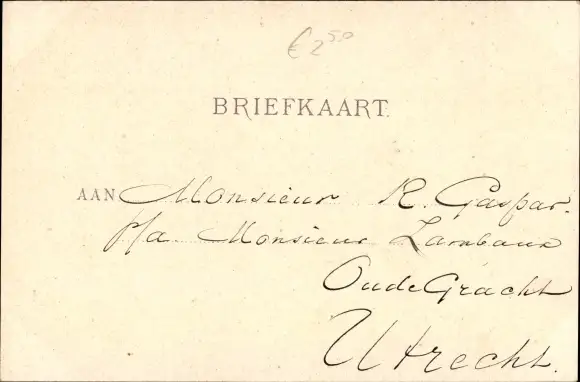 € 2 50
BRIEFKAART.
AAN Monsieur R. Gaspar.
p/a. Monsieur Lambaux
Oude Gracht
Utrecht.